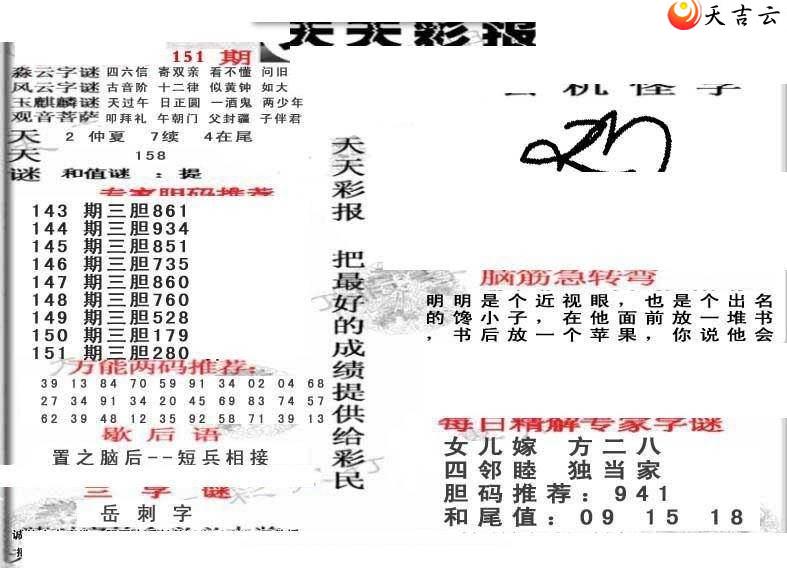 天吉云
天天彩报
151 期
淼云字谜 四六信 寄双亲 看不懂 问旧
风云字谜 古音阶 十二律 似黄钟 如大
玉麒麟谜 天过午 日正圆 一酒鬼 两少年
观音菩萨 叩拜礼 午朝门 父封疆 子伴君
天 2 仲夏 7续 4在尾
天 158
谜 和值谜 : 提
专家胆码推荐
143 期三胆861
144 期三胆934
145 期三胆851
146 期三胆735
147 期三胆860
148 期三胆760
149 期三胆528
150 期三胆179
151 期三胆280
万能两码推荐:
39 13 84 70 59 91 34 02 04 68
27 34 91 34 20 45 69 83 74 57
62 39 48 12 35 92 58 71 39 13
歇后语
置之脑后--短兵相接
三字谜
岳刺字
天天彩报 把最好的成绩提供给彩民
机怪字
脑筋急转弯
明明是个近视眼，也是个出名
的馋小子，在他面前放一堆书
，书后放一个苹果，你说他会
每日精解专家字谜
女儿嫁 方二八
四邻睦 独当家
胆码推荐：941
和尾值：09 15 18